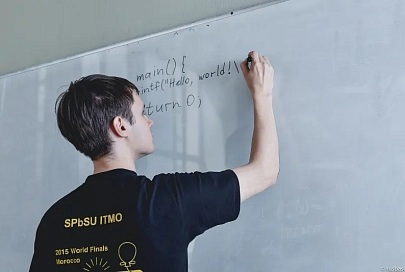 main() {
intf("Hello, world!\
turn 0;
SPbSU ITMO
2015 World Finals
Morocco